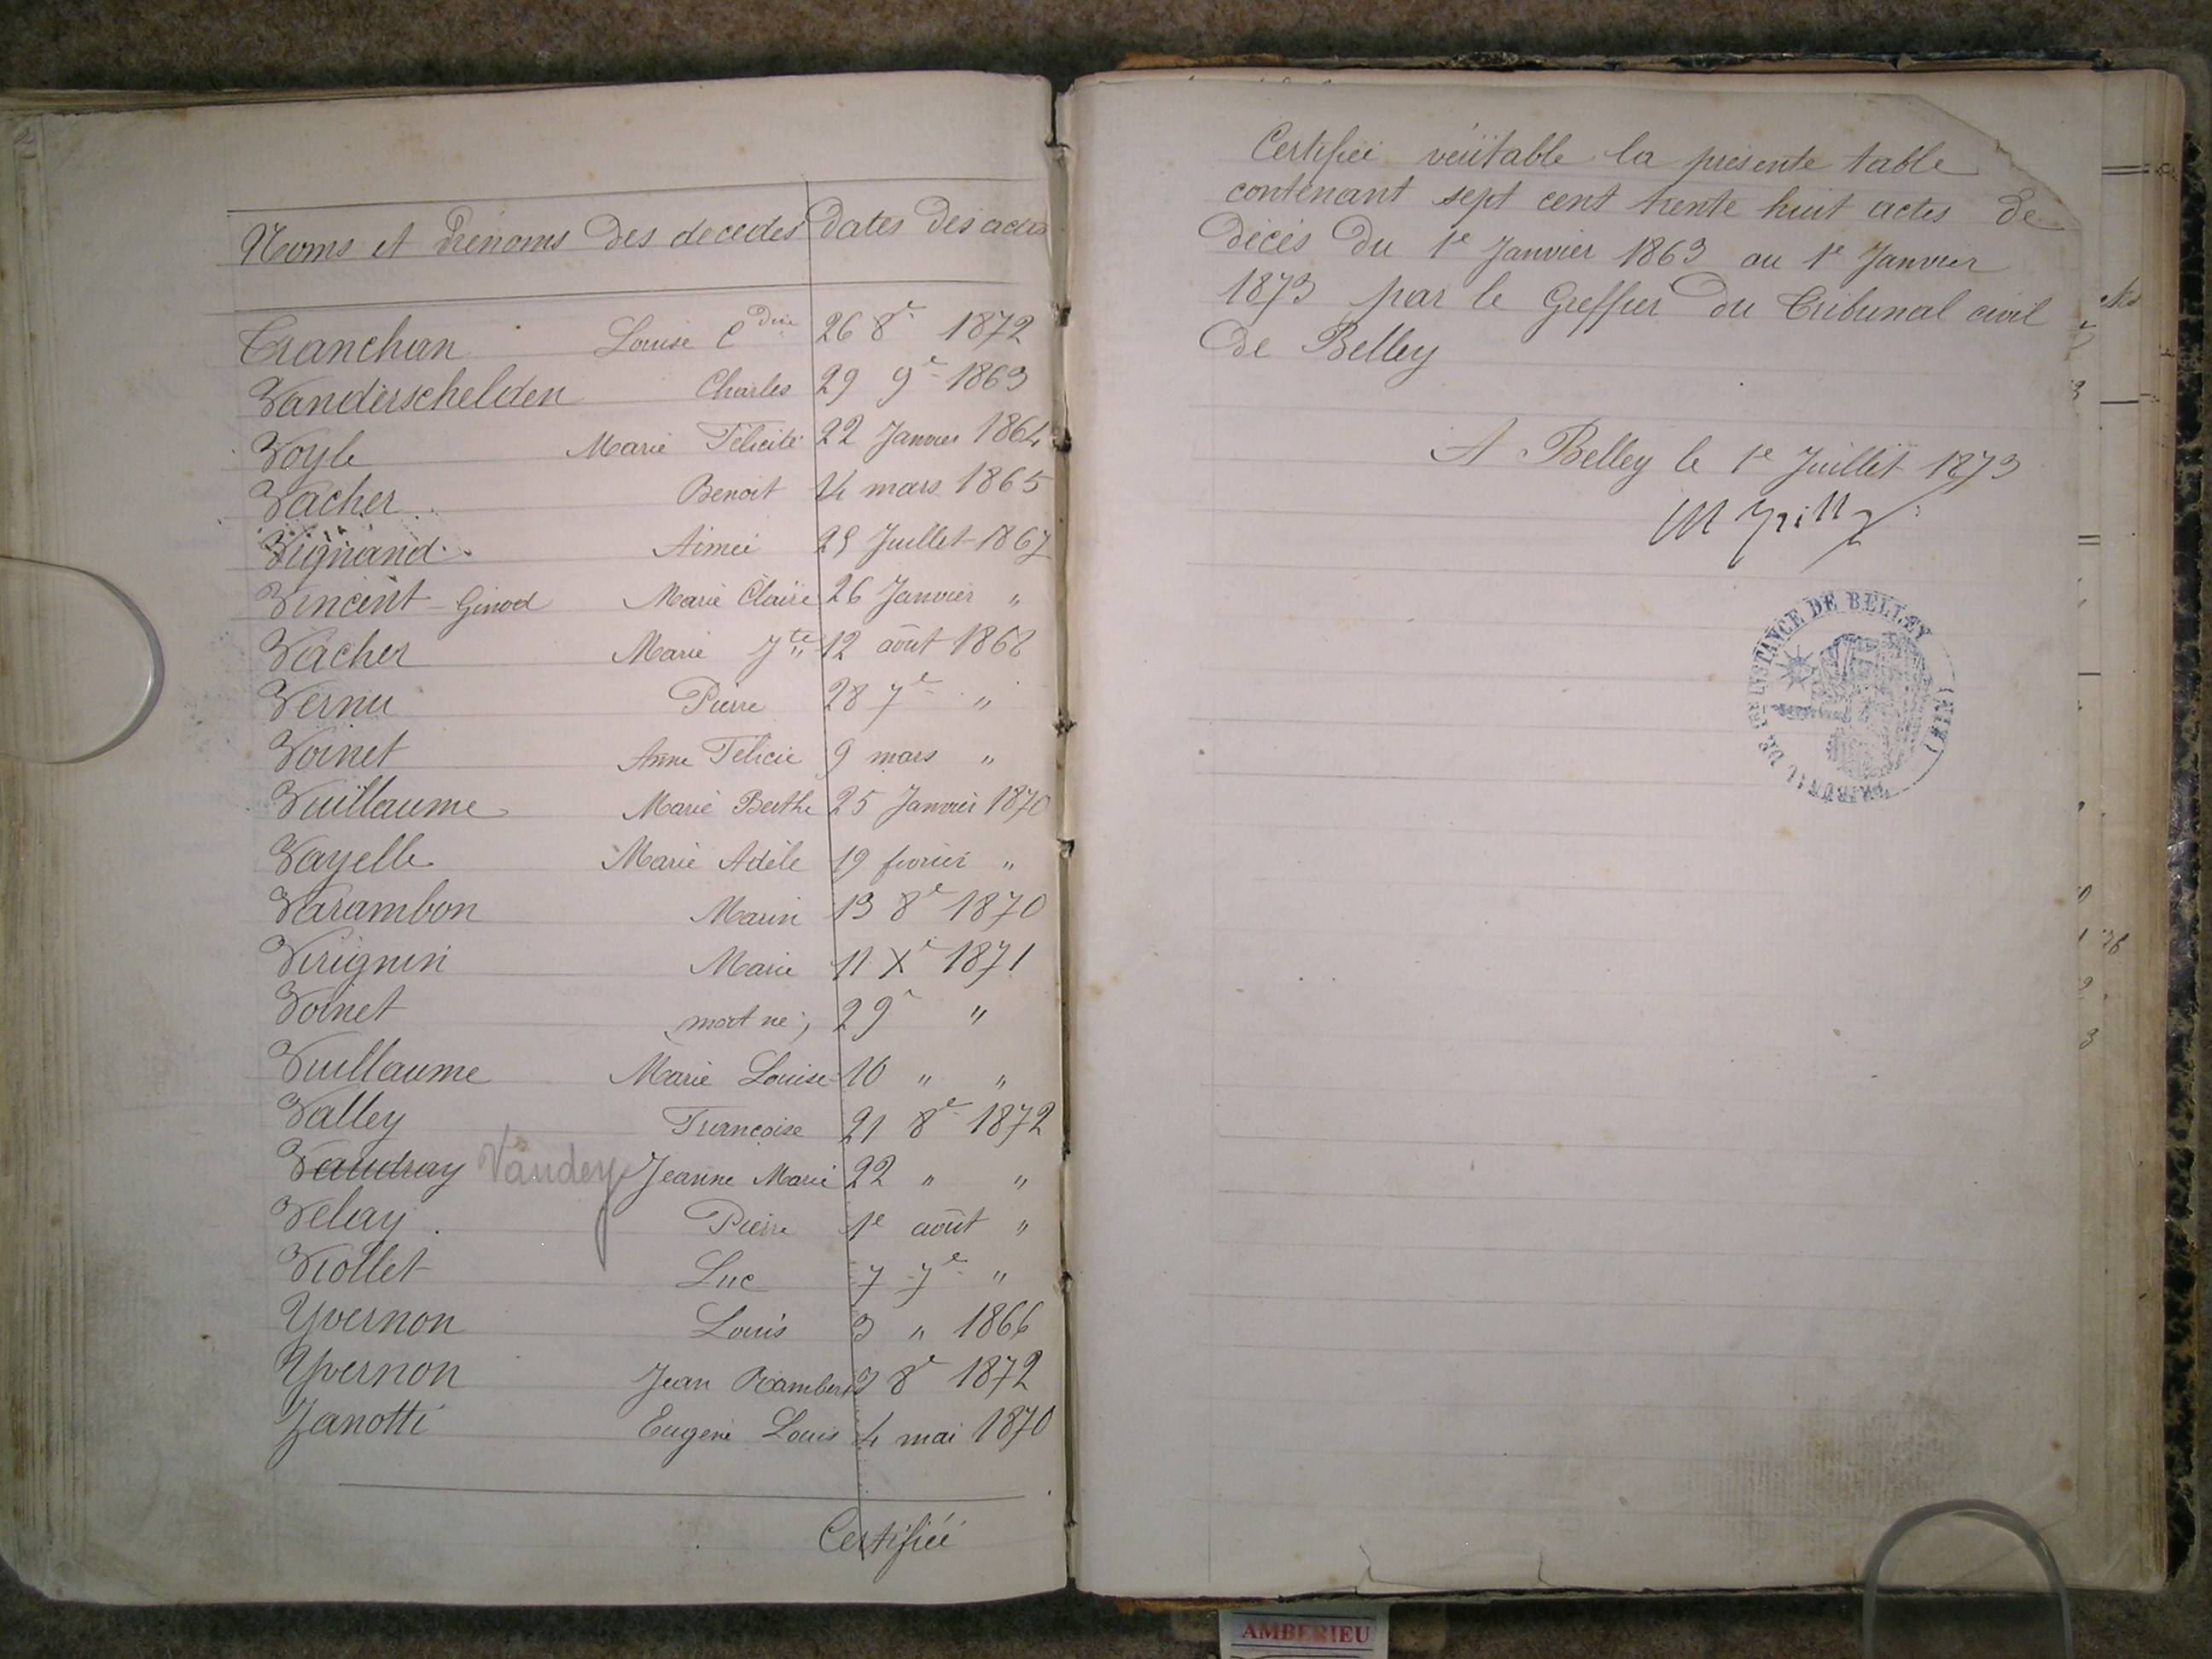 Noms et Prénoms des décédés Dates des actes
Tranchan Louise C^dine 26 8^e 1872
Vanderschelden Charles 29 9^e 1863
Voyle Marie Félicité 22 Janvier 1864
Vacher Benoit 14 mars 1865
Vignand Aimée 25 Juillet 1867
Vincent - Ginod Marie Claire 26 Janvier "
Vacher Marie J^te 12 août 1868
Vernu Pierre 28 7^e "
Voinet Anne Félicie 9 mars "
Vuillaume Marie Berthe 25 Janvier 1870
Vayelle Marie Adèle 19 février "
Varambon Marin 13 8^e 1870
Virignin Marie 11 X^e 1871
Voinet (mort né) 29 "
Vuillaume Marie Louise 10 " "
Valley Françoise 21 8^e 1872
Vaudray Vaudey Jeanne Marie 22 " "
Velay Pierre 1^e août "
Viollet Luc 7 7^e "
Yvernon Louis 3 " 1866
Yvernon Jean Rambert 3 8^e 1872
Zanotti Eugène Louis 4 mai 1870
Certifiée
Certifiée véritable la présente table
contenant sept cent trente huit actes de
décès du 1^e Janvier 1863 au 1^e Janvier
1873 par le Greffier du Tribunal civil
de Belley
A Belley le 1^e Juillet 1873
TRIBUNAL DE 1ERE INSTANCE DE BELLEY (AIN)
AMBERIEU